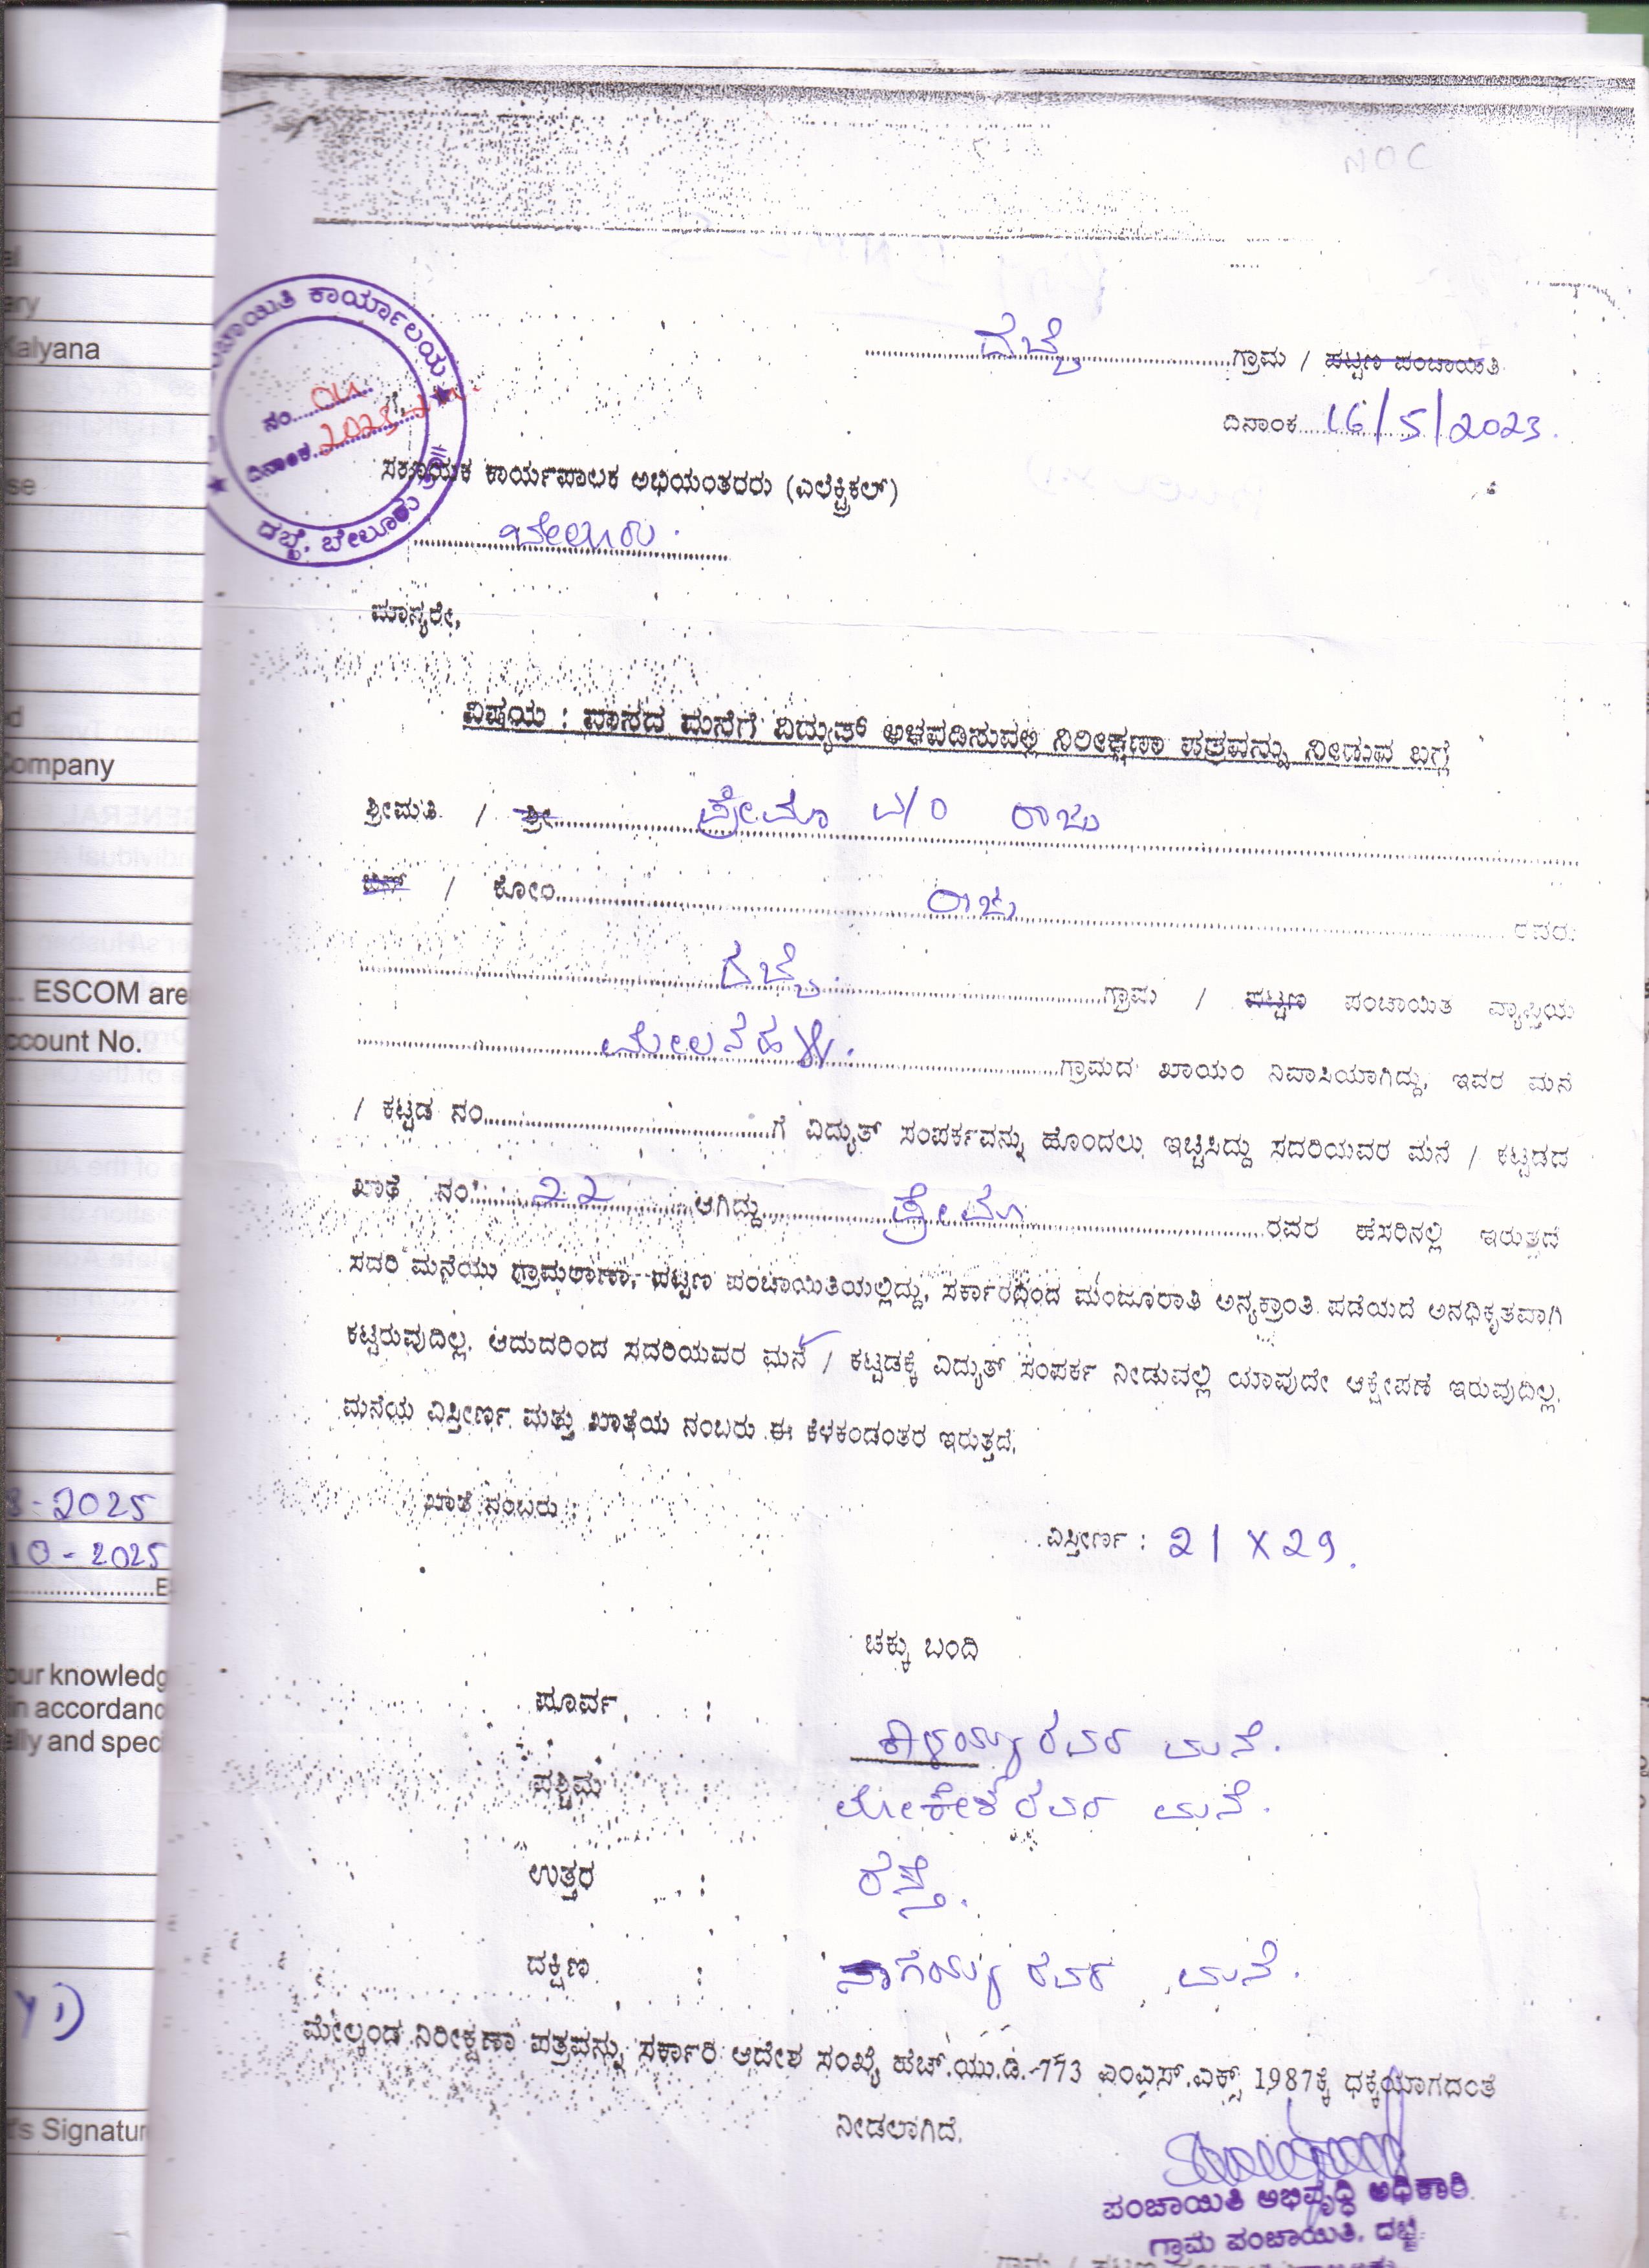 al
ary
Kalyana
se
d
Company
.. ESCOM are
ccount No.
8-2025
10-2025
our knowledg
in accordanc
ally and spec
's Signature
NOC
ಚಾಯಿತಿ ಕಾರ್ಯಾಲಯ
ನಂ
ದಿನಾಂಕ
ದಬ್ಬೆ, ಬೇಲೂರು
ದಬ್ಬೆ ಗ್ರಾಮ / ಪಟ್ಟಣ ಪಂಚಾಯಿತಿ
ದಿನಾಂಕ 16/5/2023.
ಸಹಾಯಕ ಕಾರ್ಯಪಾಲಕ ಅಭಿಯಂತರರು (ಎಲೆಕ್ಟ್ರಿಕಲ್)
ಬೇಲೂರು.
ಮಾನ್ಯರೇ,
ವಿಷಯ : ವಾಸದ ಮನೆಗೆ ವಿದ್ಯುತ್ ಅಳವಡಿಸುವಲ್ಲಿ ನಿರೀಕ್ಷಣಾ ಪತ್ರವನ್ನು ನೀಡುವ ಬಗ್ಗೆ
ಶ್ರೀಮತಿ / ಶ್ರೀ ಪ್ರೇಮಾ W/O ರಾಜು
ಬಿನ್ / ಕೋಂ ರಾಜು ರವರು
ದಬ್ಬೆ. ಗ್ರಾಮ / ಪಟ್ಟಣ ಪಂಚಾಯಿತಿ ವ್ಯಾಪ್ತಿಯ
ಮೇಲನಹಳ್ಳಿ. ಗ್ರಾಮದ ಖಾಯಂ ನಿವಾಸಿಯಾಗಿದ್ದು, ಇವರ ಮನೆ
/ ಕಟ್ಟಡ ನಂ ಗೆ ವಿದ್ಯುತ್ ಸಂಪರ್ಕವನ್ನು ಹೊಂದಲು ಇಚ್ಚಿಸಿದ್ದು ಸದರಿಯವರ ಮನೆ / ಕಟ್ಟಡದ
ಖಾತೆ ನಂ 22 ಆಗಿದ್ದು ಪ್ರೇಮಾ ರವರ ಹೆಸರಿನಲ್ಲಿ ಇರುತ್ತದೆ
ಸದರಿ ಮನೆಯು ಗ್ರಾಮಠಾಣಾ, ಪಟ್ಟಣ ಪಂಚಾಯಿತಿಯಲ್ಲಿದ್ದು, ಸರ್ಕಾರದಿಂದ ಮಂಜೂರಾತಿ ಅನ್ಯಕ್ರಾಂತಿ ಪಡೆಯದೆ ಅನಧಿಕೃತವಾಗಿ
ಕಟ್ಟಿರುವುದಿಲ್ಲ. ಆದುದರಿಂದ ಸದರಿಯವರ ಮನೆ / ಕಟ್ಟಡಕ್ಕೆ ವಿದ್ಯುತ್ ಸಂಪರ್ಕ ನೀಡುವಲ್ಲಿ ಯಾವುದೇ ಆಕ್ಷೇಪಣೆ ಇರುವುದಿಲ್ಲ.
ಮನೆಯ ವಿಸ್ತೀರ್ಣ ಮತ್ತು ಖಾತೆಯ ನಂಬರು ಈ ಕೆಳಕಂಡಂತರ ಇರುತ್ತದೆ.
ಖಾತೆ ನಂಬರು :
ವಿಸ್ತೀರ್ಣ : 21 X 29.
ಚಕ್ಕು ಬಂದಿ
ಪೂರ್ವ : ಕಾಳಯ್ಯ ರವರ ಮನೆ.
ಪಶ್ಚಿಮ ಲೋಕೇಶ ರವರ ಮನೆ.
ಉತ್ತರ : ರಸ್ತೆ.
ದಕ್ಷಿಣ : ನಾಗಯ್ಯ ರವರ ಮನೆ.
ಮೇಲ್ಕಂಡ ನಿರೀಕ್ಷಣಾ ಪತ್ರವನ್ನು ಸರ್ಕಾರಿ ಆದೇಶ ಸಂಖ್ಯೆ ಹೆಚ್.ಯು.ಡಿ.-773 ಎಂಎಸ್.ಎಕ್ಸ್ 1987ಕ್ಕೆ ಧಕ್ಕೆಯಾಗದಂತೆ
ನೀಡಲಾಗಿದೆ.
ಪಂಚಾಯಿತಿ ಅಭಿವೃದ್ಧಿ ಅಧಿಕಾರಿ
ಗ್ರಾಮ ಪಂಚಾಯಿತಿ, ದಬ್ಬೆ